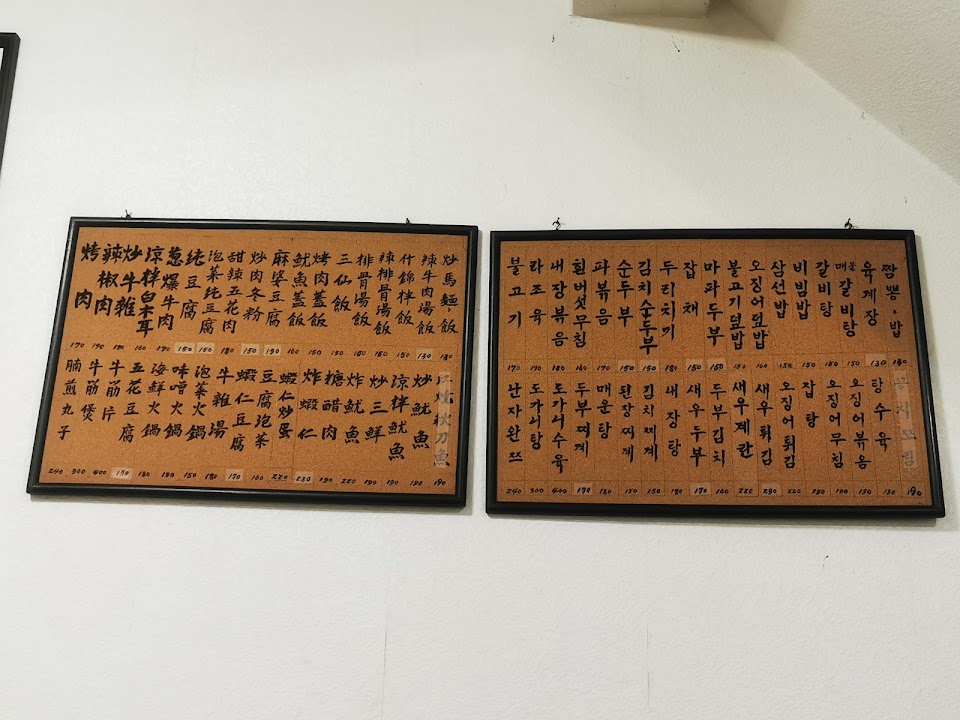 炒馬麵,飯 130
辣牛肉湯飯 130
什錦拌飯 150
辣排骨湯飯 150
排骨湯飯 150
三仙飯 150
烤肉蓋飯 150
魷魚蓋飯 160
麻婆豆腐 150
炒肉冬粉 150
甜辣五花肉 180
泡菜純豆腐 150
純豆腐 150
蔥爆牛肉 170
涼拌白木耳 160
炒牛雜 180
辣椒肉 190
烤肉 170
紅燒秋刀魚 190
炒魷魚 190
涼拌魷魚 190
炒三鮮 190
炸魷魚 220
糖醋肉 190
炸蝦仁 230
蝦仁炒蛋 220
豆腐泡菜 160
蝦仁豆腐 170
牛雜湯 180
泡菜火鍋 150
味噌火鍋 150
海鮮火鍋 180
五花豆腐 170
牛筋片 400
牛筋煲 300
腩煎丸子 240
짬뽕,밥 130
육게장 130
매운갈비탕 150
갈비탕 150
비빔밥 150
삼선밥 150
오징어덮밥 160
불고기덮밥 150
마파두부 150
잡채 150
두리치기 180
김치순두부 150
순두부 150
파볶음 170
흰버섯무침 160
내장볶음 180
라조육 190
불고기 170
꽁치조림 190
탕수육 190
오징어볶음 190
오징어무침 190
잡탕 190
오징어튀김 220
새우튀김 230
새우계란 220
두부김치 160
새우두부 170
내장탕 180
김치찌게 150
된장찌게 150
매운탕 180
두부찌게 170
도가니수육 400
도가니탕 300
난자완쯔 240